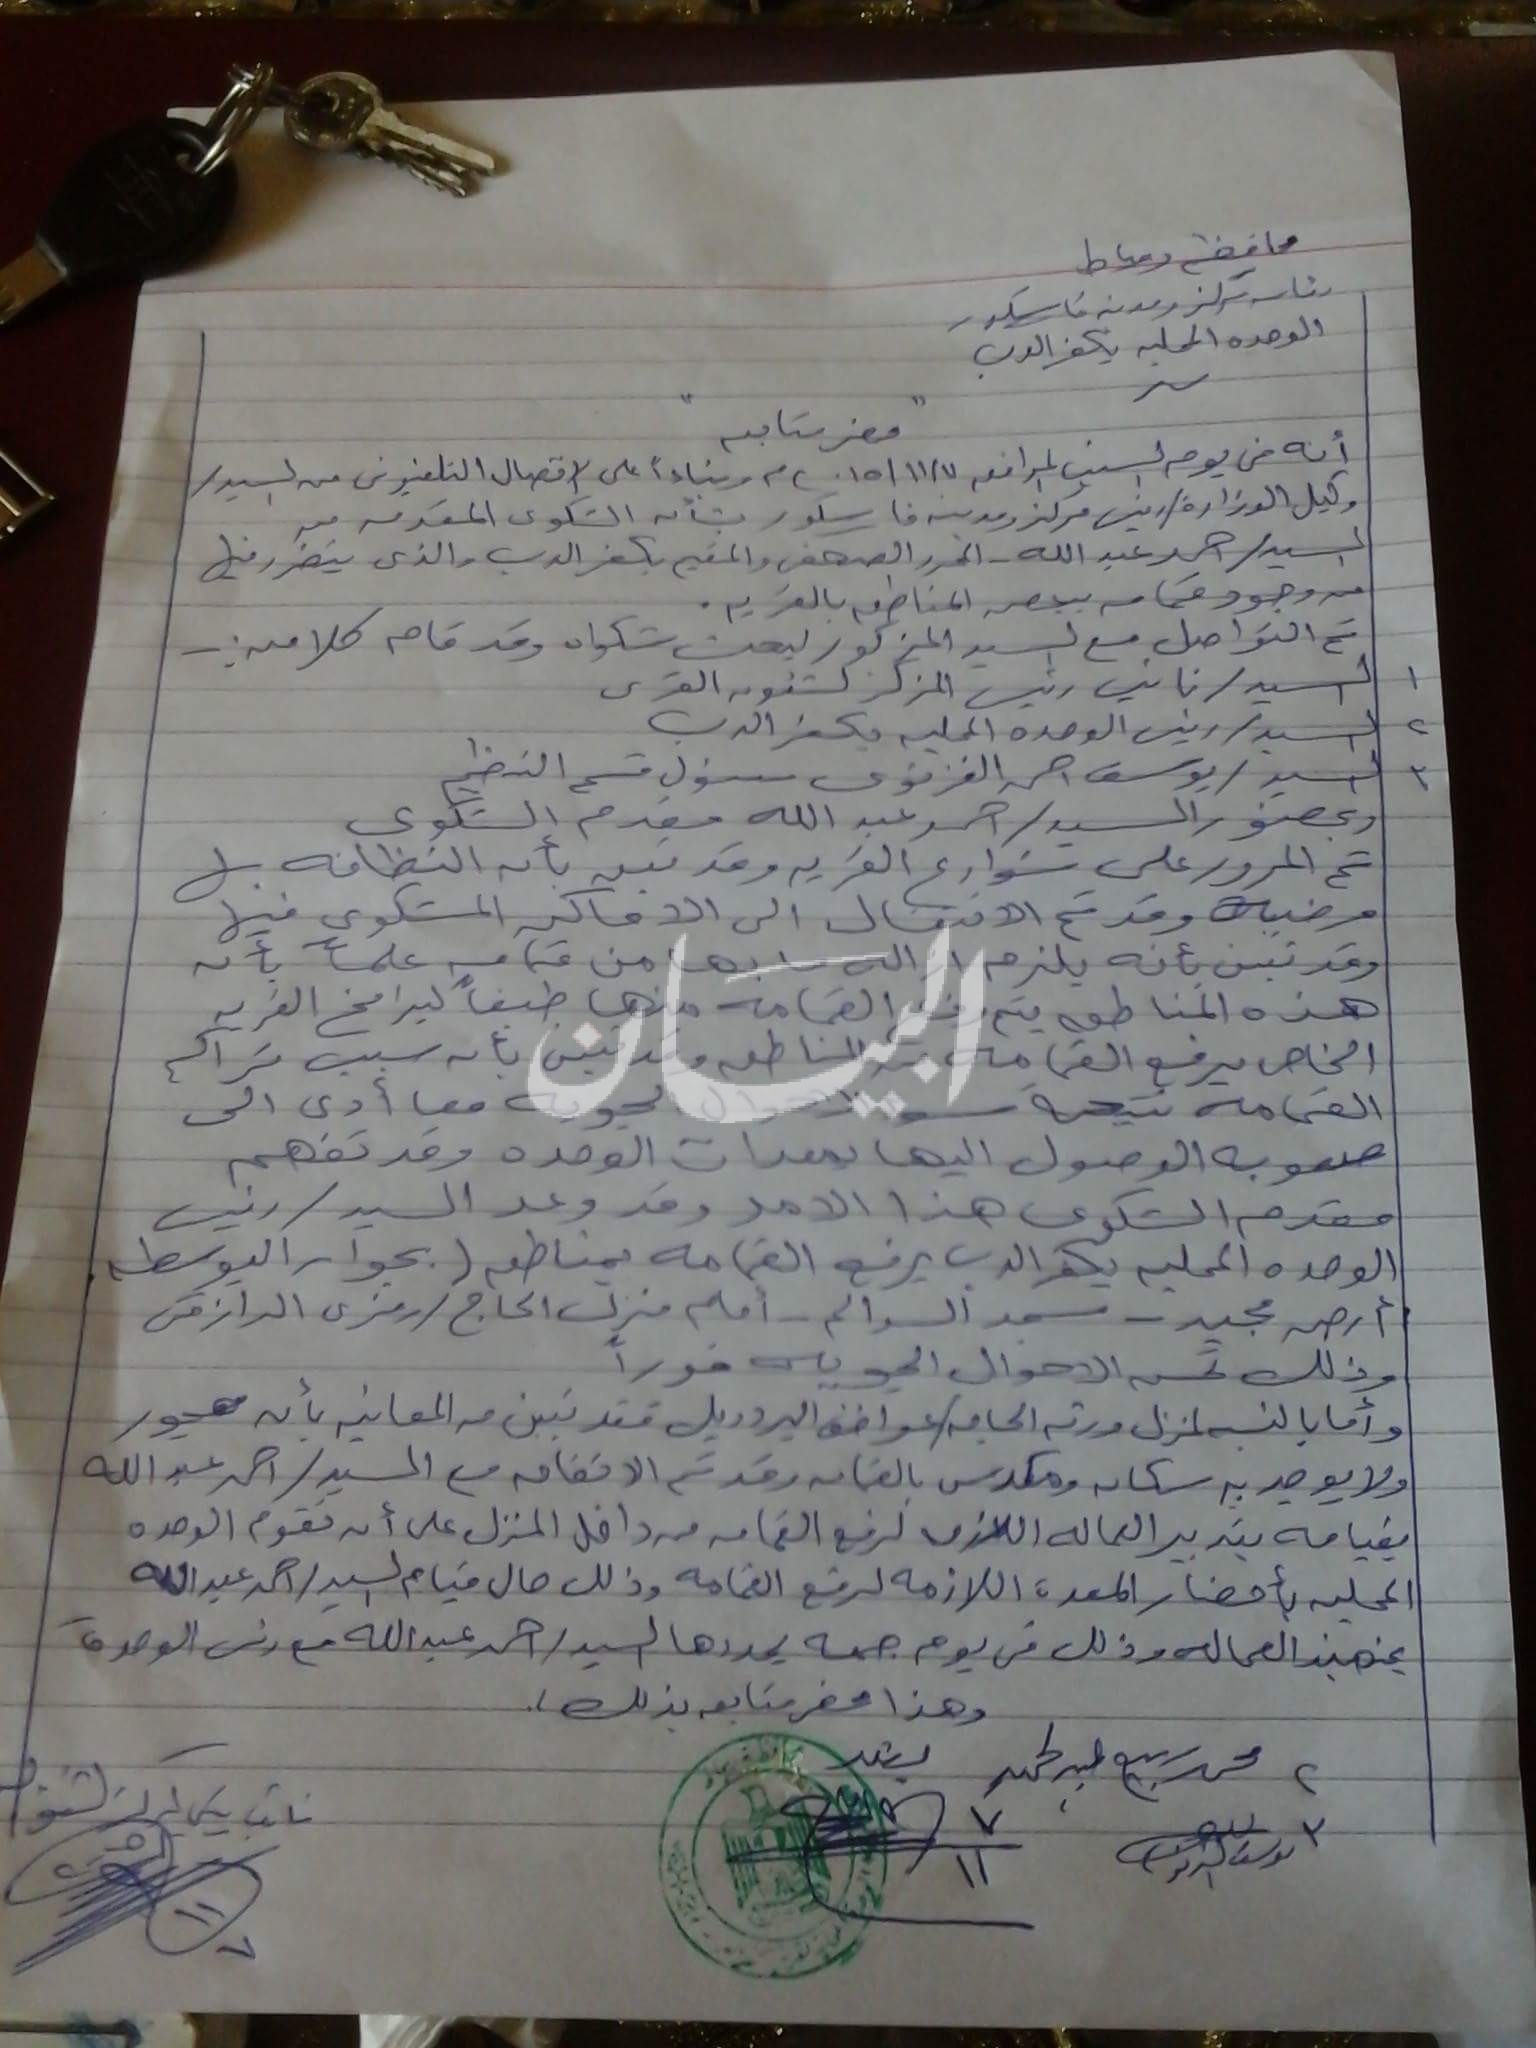 محافظة دمياط
رئاسة مركز ومدينة فارسكور
الوحده المحليه بكفر العرب
" محضر متابعه "
أنه فى يوم السبت الموافق ٢٠١٥/١١/٧ م وبناءاً على الاتصال التلفيونى من السيد/
وكيل الوزارة/رئيس مركز ومدينه فارسكور بشأن الشكوى المقدمه من
السيد/احمد عبد الله - المحرر الصحفى والمقيم بكفر العرب والذى يتضرر فيها
من وجود قمامه ببعض المناطق بالقريه .
تم التواصل مع السيد المذكور لبحث شكواه وقد قام كلا من :-
١ السيد/نائب رئيس المركز لشئون القرى
٢ السيد/رئيس الوحده المحليه بكفر العرب
٣ السيد/يوسف احمد الغزنوى مسئول قسم التنظيم
وبحضور السيد/احمد عبد الله مقدم الشكوى
تم المرور على شوارع القريه وقد تبين بأن النظافه بها
مرضيه وقد تم الانتقال الى الاماكن المشكوى فيها
وقد تبين بأنه يلزم ازاله ما بها من قمامه علماً بأن
هذه المناطق يتم رفع القمامة منها طبقاً لبرامج القريه
الخاص برفع القمامه من المناطق وقد تبين بأن سبب تراكم
القمامه نتيجة سوء الاحوال الجويه مما أدى الى
صعوبه الوصول اليها بمعدات الوحده وقد تفهم
مقدم الشكوى هذا الامر وقد وعد السيد/رئيس
الوحده المحليه بكفر العرب برفع القمامه بمناطق (بجوار البوسطه
أرض مجيد - مسجد السوالم - أمام منزل الحاج/رمزى الدرازقى
وذلك تحسن الاحوال الجويه فوراً
وأما بالنسبه لمنزل ورثه الحاجه/عواطف البردويل فقد تبين من المعاينه بأنه مهجور
ولا يوجد به سكان ومكدس بالقمامه وقد تم الاتفاق مع السيد/احمد عبد الله
بقيامه بتدبير العماله اللازمه لرفع القمامه من داخل المنزل على أن تقوم الوحده
المحليه بأحضار المعدة اللازمه لرفع القمامه وذلك حال قيام السيد/احمد عبدالله
بتحضير العماله وذلك فى يوم جمعه يحددها السيد/احمد عبد الله مع رئيس الوحدة
وهذا محضر متابعه بذلك ،،
٢ محمد ربيع عبد الحميد يعتمد
نائب رئيس المركز لشئون
٧
١١
٣ يوسف الغزنوى
١١
٧
البيان